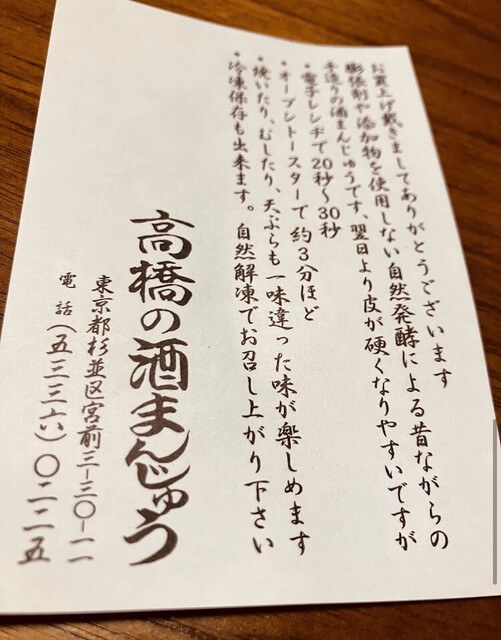 お買上げ戴きましてありがとうございます
膨張剤や添加物を使用しない自然発酵による昔ながらの
手造りの酒まんじゅうです、翌日より皮が硬くなりやすいですが
・電子レンヂで20秒〜30秒
・オーブントースターで約3分ほど
・焼いたり、むしたり、天ぷらも一味違った味が楽しめます
・冷凍保存も出来ます。自然解凍でお召し上がり下さい
高橋の酒まんじゅう
東京都杉並区宮前三ー三〇ー一一
電話(五三三六)〇二二五